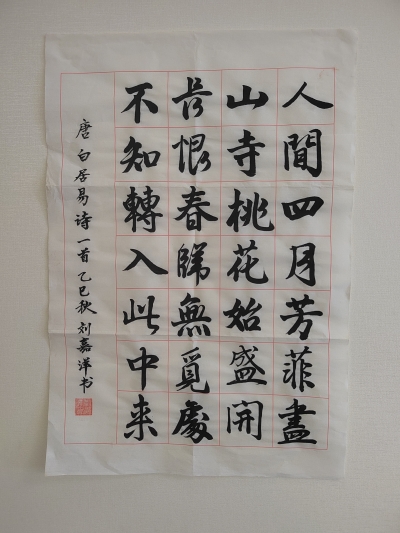 人間四月芳菲盡
山寺桃花始盛開
长恨春歸無覓處
不知轉入此中来
唐白居易诗一首乙巳秋刘嘉洋书